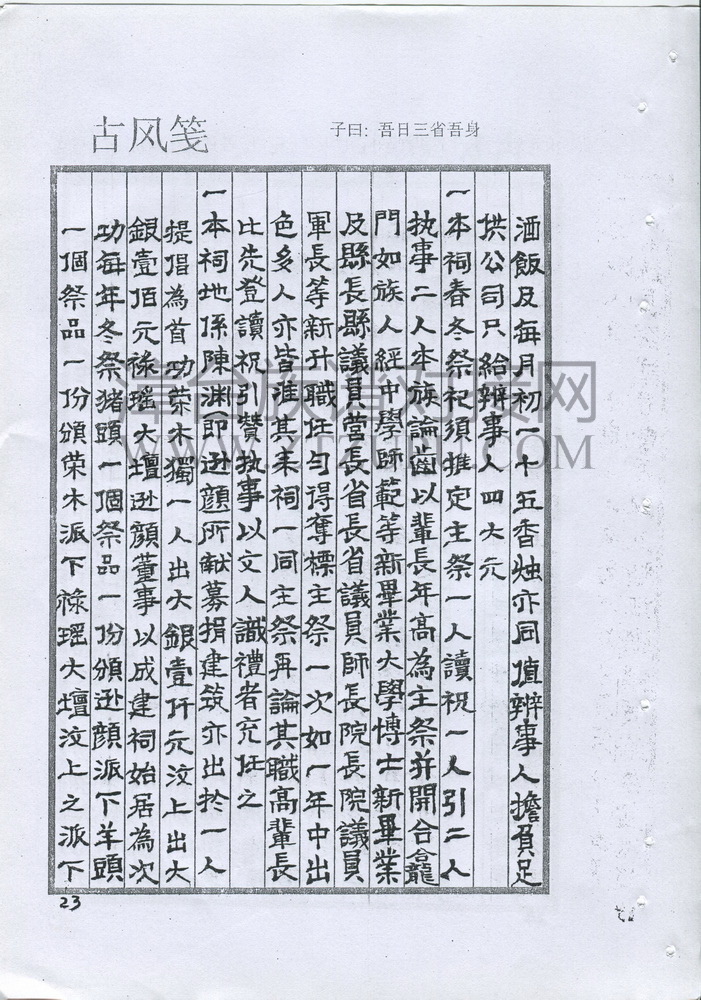 古风笺
子曰：吾日三省吾身
酒飯及每月初一十五香烛亦同值辦事人擔負足
供公司只給辦事人四大元
一本祠春冬祭祀須推定主祭一人讀祝一人引二人
执事二人本族論齒以輩長年高為主祭并開合龕
門如族人經中學師範等新畢業大學博士新畢業
及縣長縣議員营長省長省議員師長院長院議員
軍長等新升職任勻得奪標主祭一次如一年中出
色多人亦皆准其来祠一同主祭再論其職高輩長
比先登讀祝引贊执事以文人識禮者充任之
一本祠地係陳渊即逊顔所献募捐建筑亦出於一人
提倡為首功荣木獨一人出大銀壹仟元汶上出大
銀壹佰元禄瑶大壇逊顔董事以成建祠始居為次
功每年冬祭猪頭一個祭品一份頒逊顔派下羊頭
一個祭品一份頒荣木派下祿瑶大壇汶上之派下
23
漳台族谱对接网
WWW.ZTZUPU.COM